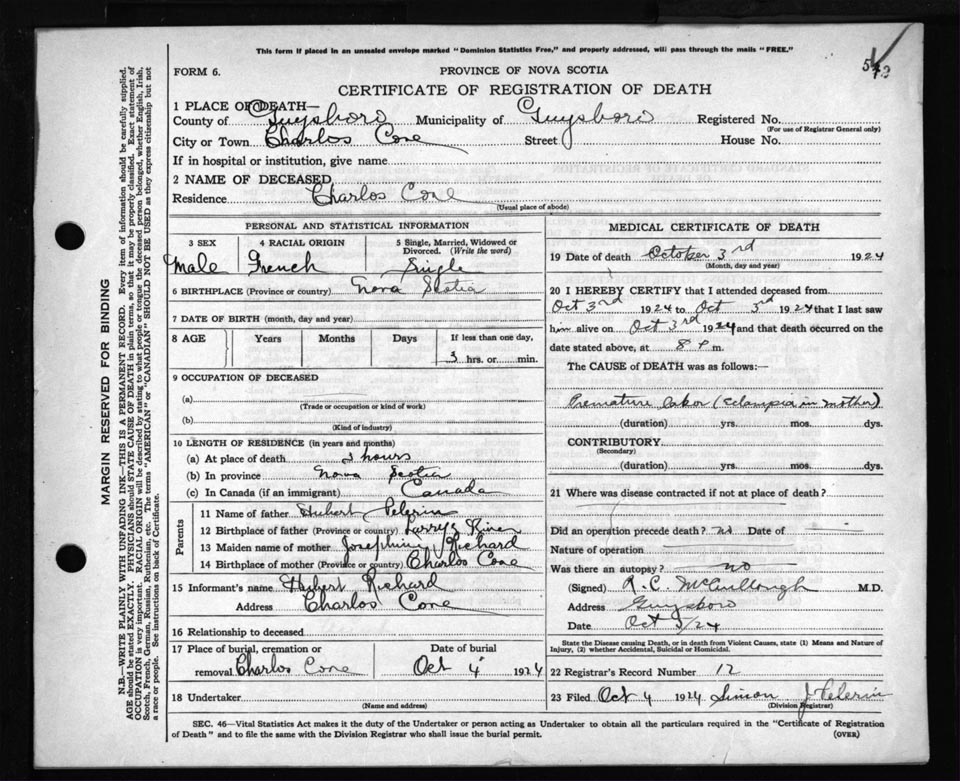 This form if placed in an unsealed envelope marked "Dominion Statistics Free," and properly addressed, will pass through the mails "FREE."
FORM 6.
PROVINCE OF NOVA SCOTIA
CERTIFICATE OF REGISTRATION OF DEATH
1 PLACE OF DEATH—
County of Guysboro Municipality of Guysboro Registered No.
(For use of Registrar General only)
City or Town Charlos Cove Street House No.
If in hospital or institution, give name
2 NAME OF DECEASED
Residence Charlos Cove
(Usual place of abode)
PERSONAL AND STATISTICAL INFORMATION
3 SEX 4 RACIAL ORIGIN 5 Single, Married, Widowed or
Divorced. (Write the word)
Male French Single
6 BIRTHPLACE (Province or country) Nova Scotia
7 DATE OF BIRTH (month, day and year)
8 AGE Years Months Days If less than one day,
3 hrs. or min.
9 OCCUPATION OF DECEASED
(a)
(Trade or occupation or kind of work)
(b)
(Kind of industry)
10 LENGTH OF RESIDENCE (in years and months)
(a) At place of death 3 hours
(b) In province Nova Scotia
(c) In Canada (if an immigrant) Canada
Parents
11 Name of father Hubert Pelerin
12 Birthplace of father (Province or country) River
13 Maiden name of mother Josephine Richard
14 Birthplace of mother (Province or country) Charlos Cove
15 Informant's name Hubert Richard
Address Charlos Cove
16 Relationship to deceased
17 Place of burial, cremation or Date of burial
removal Charlos Cove Oct 4 1924
18 Undertaker
(Name and address)
MEDICAL CERTIFICATE OF DEATH
19 Date of death October 3rd 1924
(Month, day and year)
20 I HEREBY CERTIFY that I attended deceased from
Oct 3rd 1924 to Oct 3rd 1924 that I last saw
him alive on Oct 3rd 1924 and that death occurred on the
date stated above, at 8 P m.
The CAUSE of DEATH was as follows:—
Premature labor (eclampsia in mother)
(duration) yrs. mos. dys.
CONTRIBUTORY
(Secondary)
(duration) yrs. mos. dys.
21 Where was disease contracted if not at place of death?
Did an operation precede death? no Date of
Nature of operation
Was there an autopsy? no
(Signed) R. C. McCullough M.D.
Address Guysboro
Date Oct 3/24
State the Disease causing Death, or in death from Violent Causes, state (1) Means and Nature of
Injury, (2) whether Accidental, Suicidal or Homicidal.
22 Registrar's Record Number 12
23 Filed Oct 4 1924 Simon J Pelerin
(Division Registrar)
SEC. 46—Vital Statistics Act makes it the duty of the Undertaker or person acting as Undertaker to obtain all the particulars required in the "Certificate of Registration
of Death" and to file the same with the Division Registrar who shall issue the burial permit. (OVER)
MARGIN RESERVED FOR BINDING
N.B.—WRITE PLAINLY WITH UNFADING INK—THIS IS A PERMANENT RECORD. Every item of information should be carefully supplied.
AGE should be stated EXACTLY. PHYSICIANS should STATE CAUSE OF DEATH in plain terms, so that it may be properly classified. Exact statement of
OCCUPATION is very important. RACIAL ORIGIN will be described by stating to what people or tongue the deceased person belonged, whether English, Irish,
Scotch, French, German, Russian, Ruthenian, etc. The terms "AMERICAN" or "CANADIAN" SHOULD NOT BE USED as they express citizenship but not
a race or people. See instructions on back of Certificate.